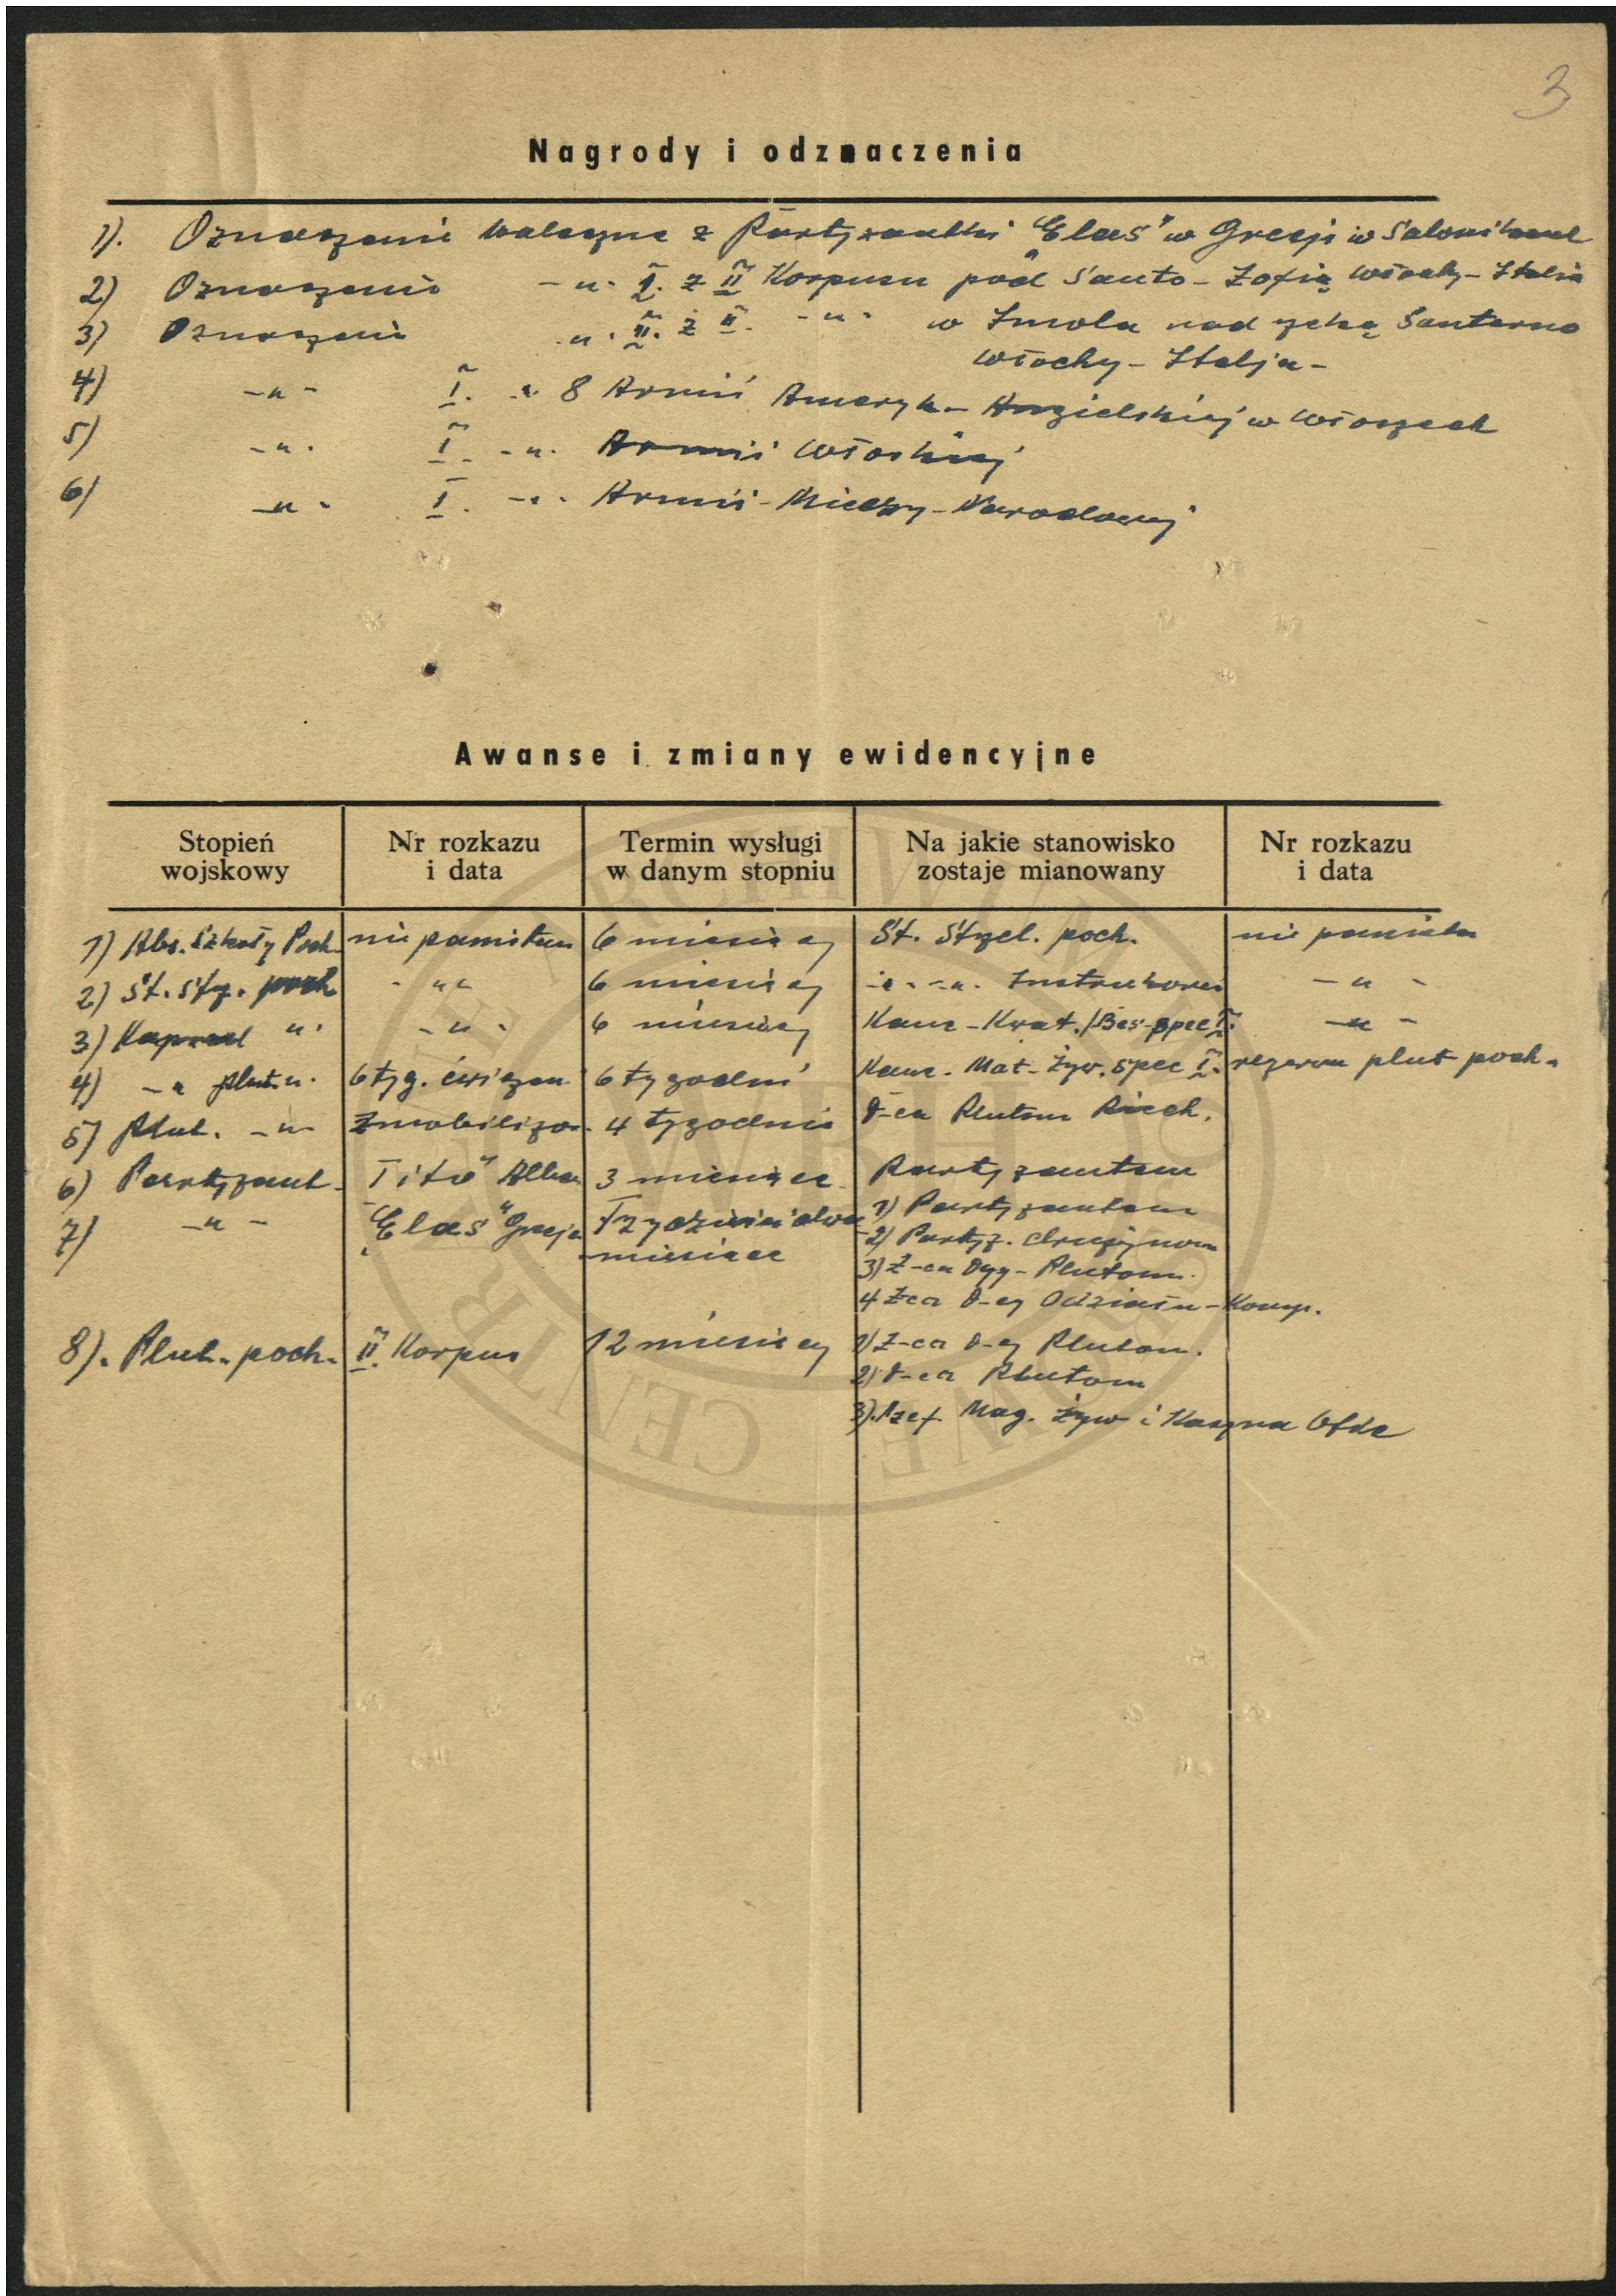 3
Nagrody i odznaczenia
1). Oznaczenie waleczne z Partyzantki "Elas" w Grecji w Salonikach
2) Oznaczenie -„- I. z II Korpusu pod Santo-Zofią Włochy-Italia
3) Oznaczenie -„- II. z II. -„- w Imola nad rzeką Santerno
Włochy-Italja-
4) -„- I. -„- 8 Armii Ameryk-Angielskiej w Włoszech
5) -„- I. -„- Armii Włoskiej
6) -„- I. -„- Armii-Miedzy-Narodowej
Awanse i zmiany ewidencyjne
Stopień wojskowy | Nr rozkazu i data | Termin wysługi w danym stopniu | Na jakie stanowisko zostaje mianowany | Nr rozkazu i data
1) Abs. Szkoły Poch. | nie pamitam | 6 miesięcy | St. Strzel. poch. | nie pamietam
2) St. Strz. poch | -„- | 6 miesięcy | -„- -„- Instruktorem | -„-
3) Kapral „ | -„- | 6 miesięcy | Kanc-Kwat. | -„-
4) -„ plut.„ | 6 tyg. ćwiczen. | 6 tygodni | Kanc. Mat-Żyw. spec I. | rezerwa plut poch.
5) Plut. -„- | Zmobilizow. | 4 tygodnie | D-ca Plutonu Piech.
6) Partyzant | "Tito" Alban | 3 miesiące | Partyzantem
7) -„- | "Elas" Grecja | Trzydzieści dwa | 1) Partyzantem
miesiące | 2) Partyz. drużynow
3) Z-ca Dcy-Plutonu.
4 Z-ca D-cy Odziału-Komp.
8). Plut. poch. | II Korpus | 12 miesięcy | 1) Z-ca D-cy Pluton.
2) D-ca Plutonu
3). Szef Mag. Żyw i Kasyna